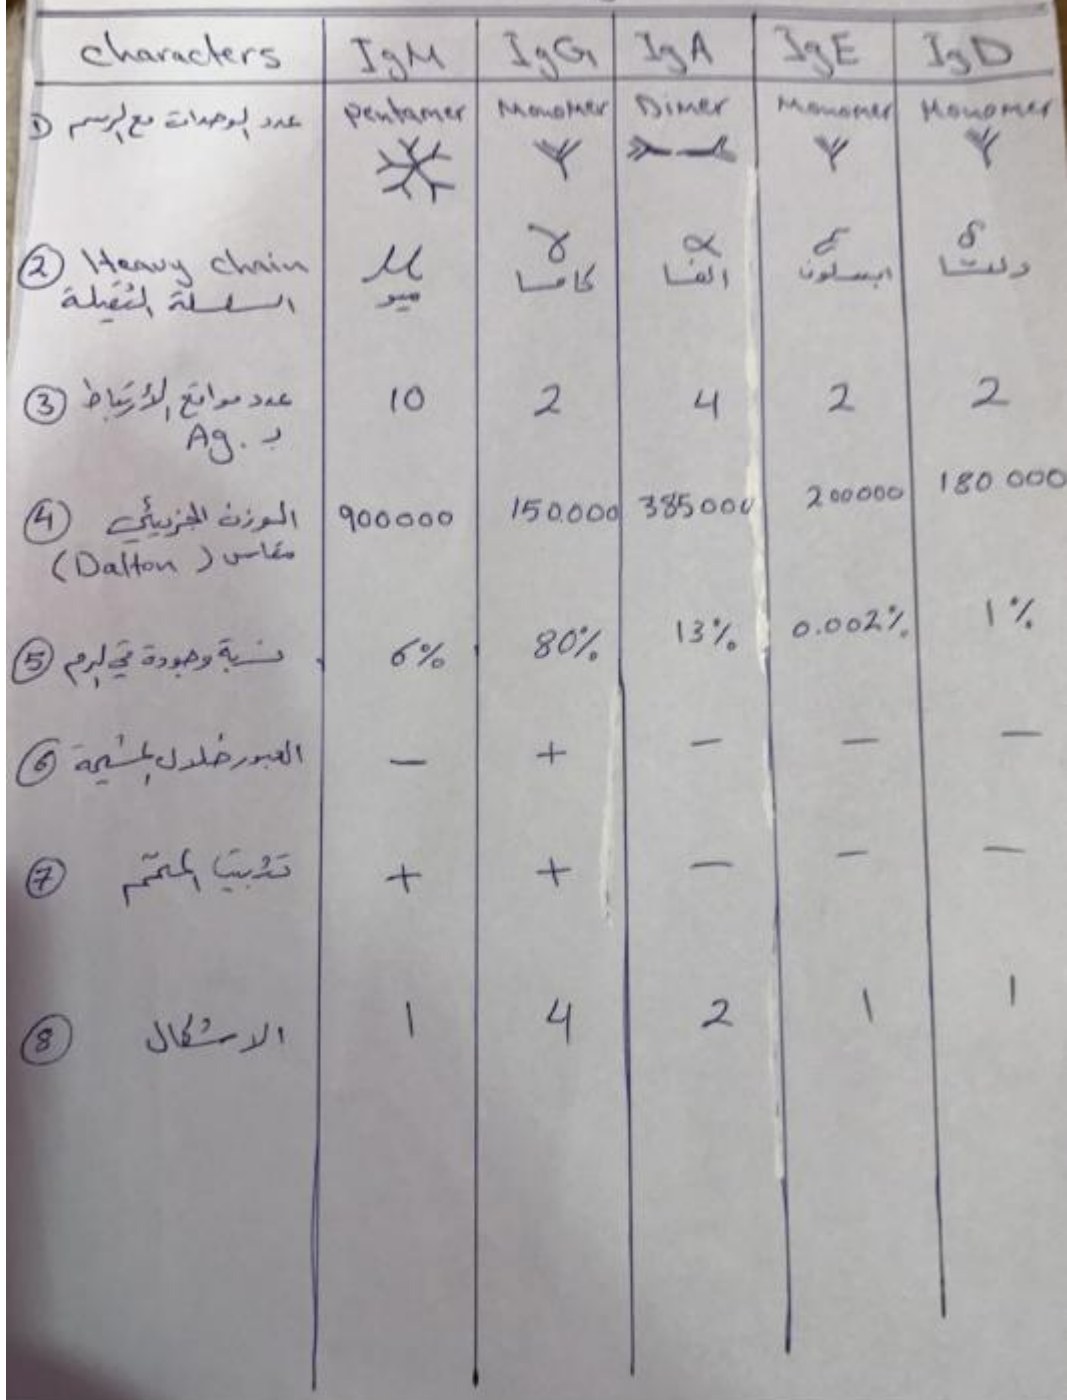 characters IgM IgG IgA IgE IgD
① عدد الوحدات مع الرسم pentamer Monomer Dimer Monomer Monomer
② Heavy chain μ γ α ε δ
السلسلة الثقيلة ميو كاما الفا ابسلون دلتا
③ عدد مواقع الأرتباط 10 2 4 2 2
بـ Ag.
④ الوزن الجزيئي 900000 150.000 385000 200000 180 000
مقاس (Dalton)
⑤ نسبة وجودة في الدم 6% 80% 13% 0.002% 1%
⑥ العبور خلال المشيمة — + — — —
⑦ تثبيت المتمم + + — — —
⑧ الاشكال 1 4 2 1 1